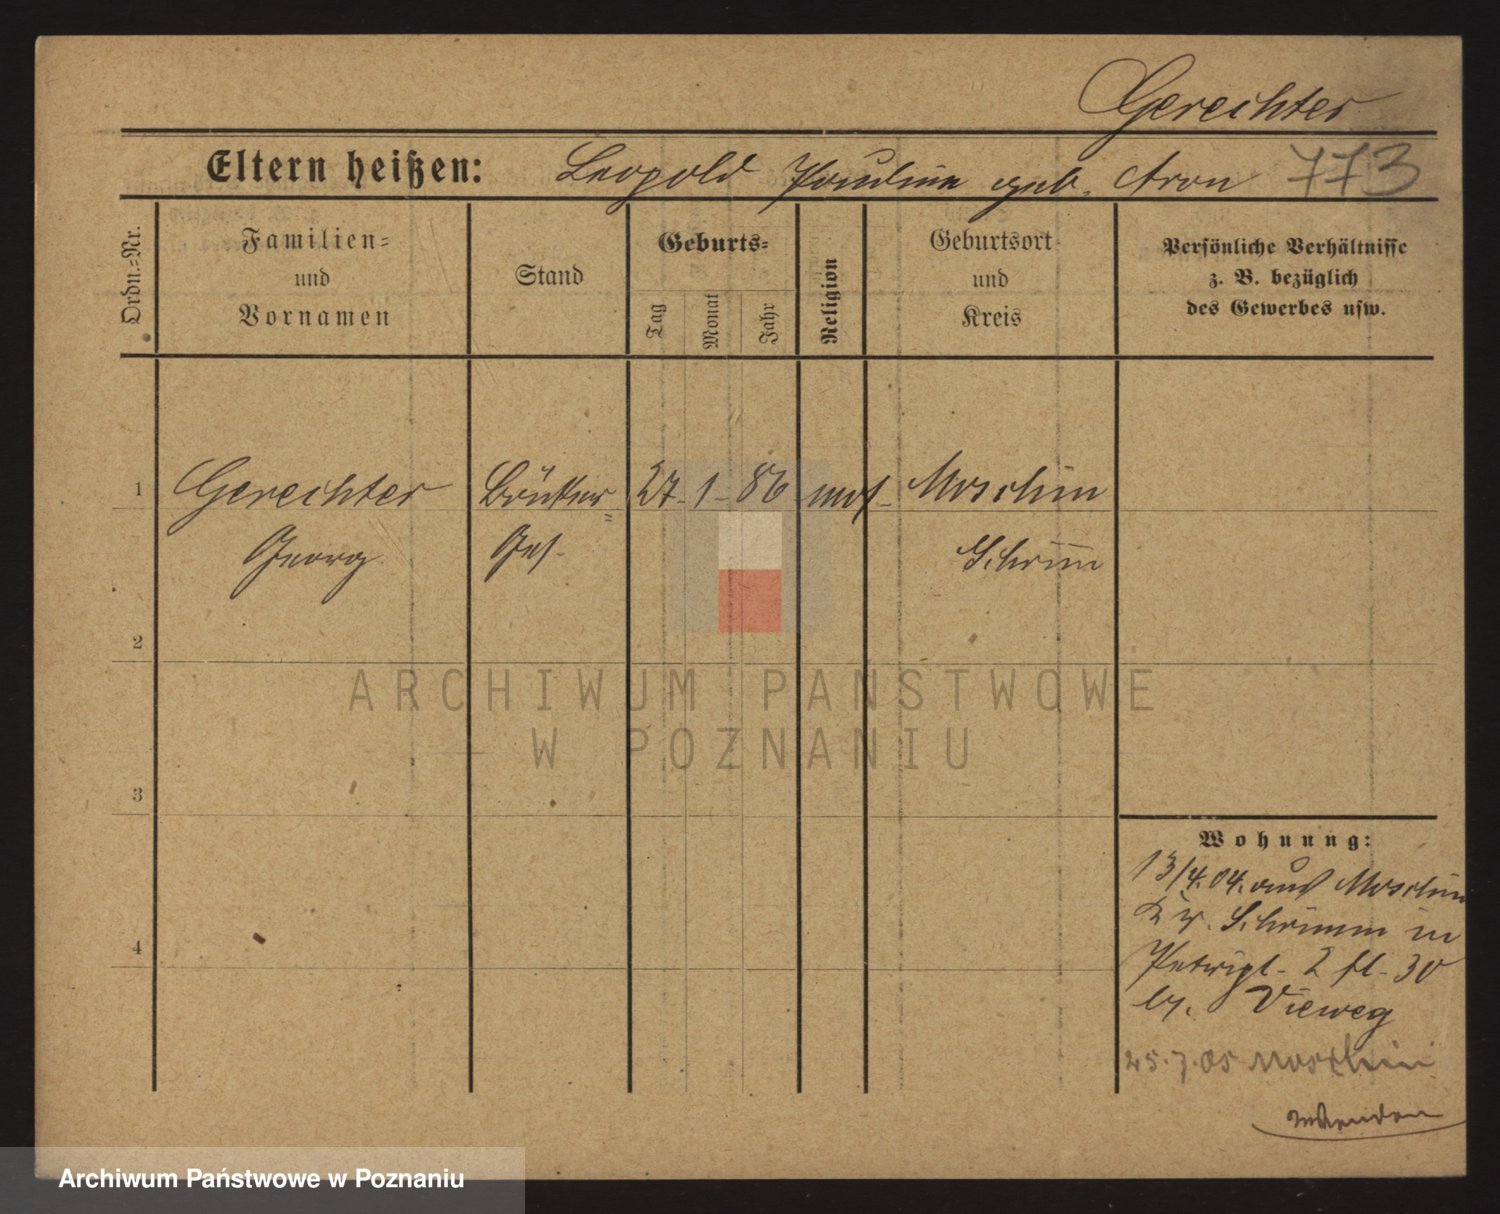 Gerechter
Eltern heißen: Leopold Pauline geb. Aron 773
Ordn.-Nr.
Familien-
und
Vornamen
Stand
Geburts-
Tag
Monat
Jahr
Religion
Geburtsort
und
Kreis
Persönliche Verhältnisse
z. B. bezüglich
des Gewerbes usw.
1 Gerechter 27. 1. 86 mos. Moschin
Georg Ges. Schrim
2
ARCHIWUM PAŃSTWOWE
W POZNANIU
3
Wohnung:
13/4. 04. aus Moschin
Kr. Schrimm in
2 fl. 30
by. Vieweg
4
25. 7. 05 Moschin
Archiwum Państwowe w Poznaniu